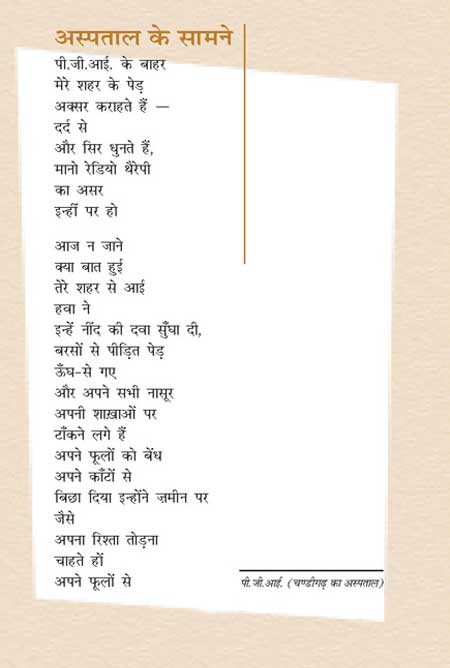 अस्पताल के सामने
पी.जी.आई. के बाहर
मेरे शहर के पेड़
अक्सर कराहते हैं —
दर्द से
और सिर धुनते हैं,
मानो रेडियो थैरेपी
का असर
इन्हीं पर हो
आज न जाने
क्या बात हुई
तेरे शहर से आई
हवा ने
इन्हें नींद की दवा सुँघा दी,
बरसों से पीड़ित पेड़
ऊँघ-से गए
और अपने सभी नासूर
अपनी शाख़ाओं पर
टाँकने लगे हैं
अपने फूलों को बेंध
अपने काँटों से
बिछा दिया इन्होंने ज़मीन पर
जैसे
अपना रिश्ता तोड़ना
चाहते हों
अपने फूलों से
पी.जी.आई. (चण्डीगढ़ का अस्पताल)